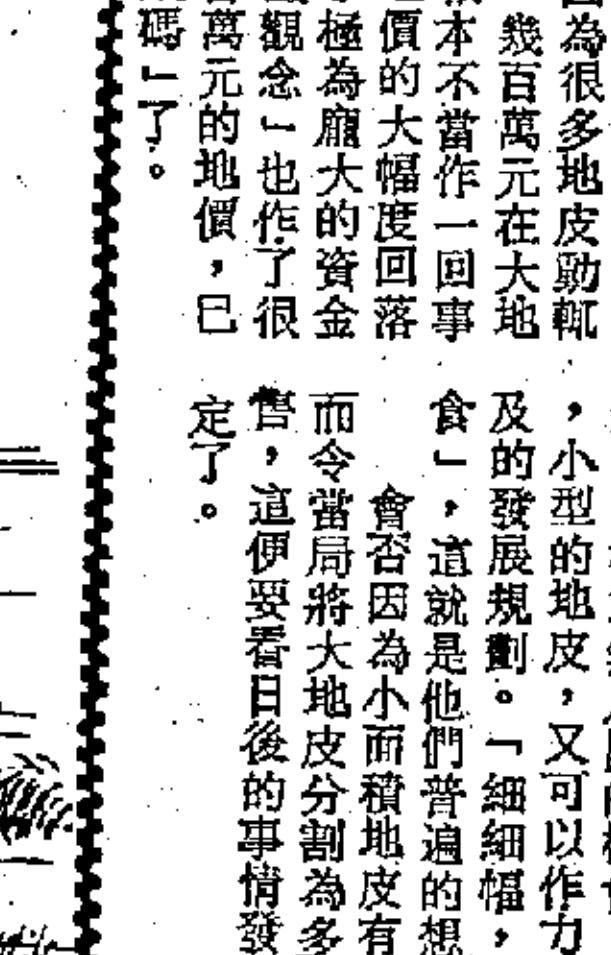 為很多地皮動輒
幾百萬元在大地
本不當作一回事
價的大幅度回落
極為龐大的資金
觀念」也作了很
萬元的地價，已
碼」了。
，小型的地皮，又可以作力
及的發展規劃。「細細幅，
食」，這就是他們普遍的想
會否因為小面積地皮有
而令當局將大地皮分割為多
售，這便要看日後的事情發
定了。